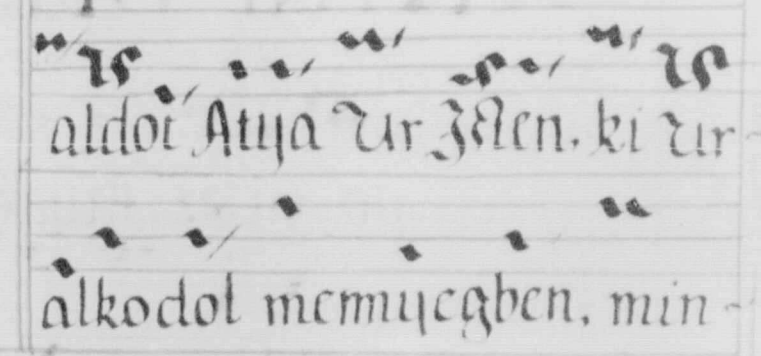 aldot Atija Ur Isten. ki Ur-
alkodol mennijegben, min-